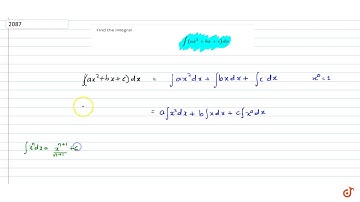 2087
Find the integral
∫(ax² + bx + c) dx
∫(ax²+bx+c) dx = ∫ax²dx + ∫bxdx + ∫c dx x⁰=1
= a∫x²dx + b∫xdx + c∫x⁰dx
∫xⁿdx = xⁿ⁺¹/n+1 + c
doubtnut